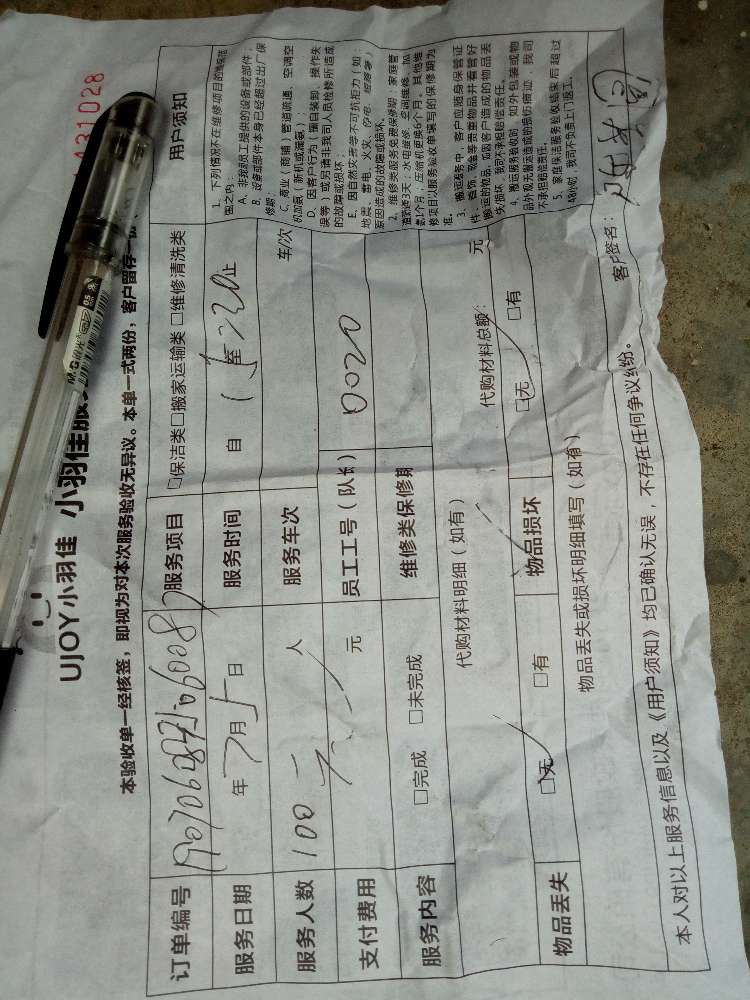 431028
UJOY小羽佳 小羽佳服
本验收单一经核签，即视为对本次服务验收无异议。本单一式两份，客户留存一份
订单编号
服务项目 □保洁类□搬家运输类□维修清洗类
用户须知
服务日期 年 7月5日
服务时间 自 至 止
服务人数 人
服务车次 车/次
支付费用 元
员工工号（队长） 0020
服务内容 □完成 □未完成
维修类保修期
1、下列情况不在维修项目的
围之内：
A、非我司员工提供的设备或部件；
B、设备或部件本身已经超过出厂保
修期；
C、商业（商铺）管道疏通、空调空
机加氨（新机或漏氨）；
D、因客户行为（擅自装卸、操作失
误等）或另请非我司人员检修所造成
的故障或损坏；
E、因自然灾害等不可抗拒力（如：
地震、雷电、火灾、
原因造成的故障或损坏。
2、维修类服务免费保修期：家庭管
道疏通3天；水电维修、空调维修、加
氨1个月；压缩机更换6个月。其他维
修项目以服务验收单填写的保修期为
准。
3、搬运服务中，客户应随身保管证
件、首饰、现金等贵重物品并看管好
搬运的物品，如因客户造成的物品丢
失损坏，我司不承担赔偿责任。
4、搬运服务验收时，如外包装或物
品外观无搬运造成的损伤痕迹，我司
不承担赔偿责任。
5、家庭保洁服务验收结束后超过
48小时，我司不负责上门返工。
代购材料明细（如有）
代购材料总额： 元
物品丢失 □无 □有
物品损坏 □无 □有
物品丢失或损坏明细填写（如有）
本人对以上服务信息以及《用户须知》均已确认无误，不存在任何争议纠纷。
客户签名：